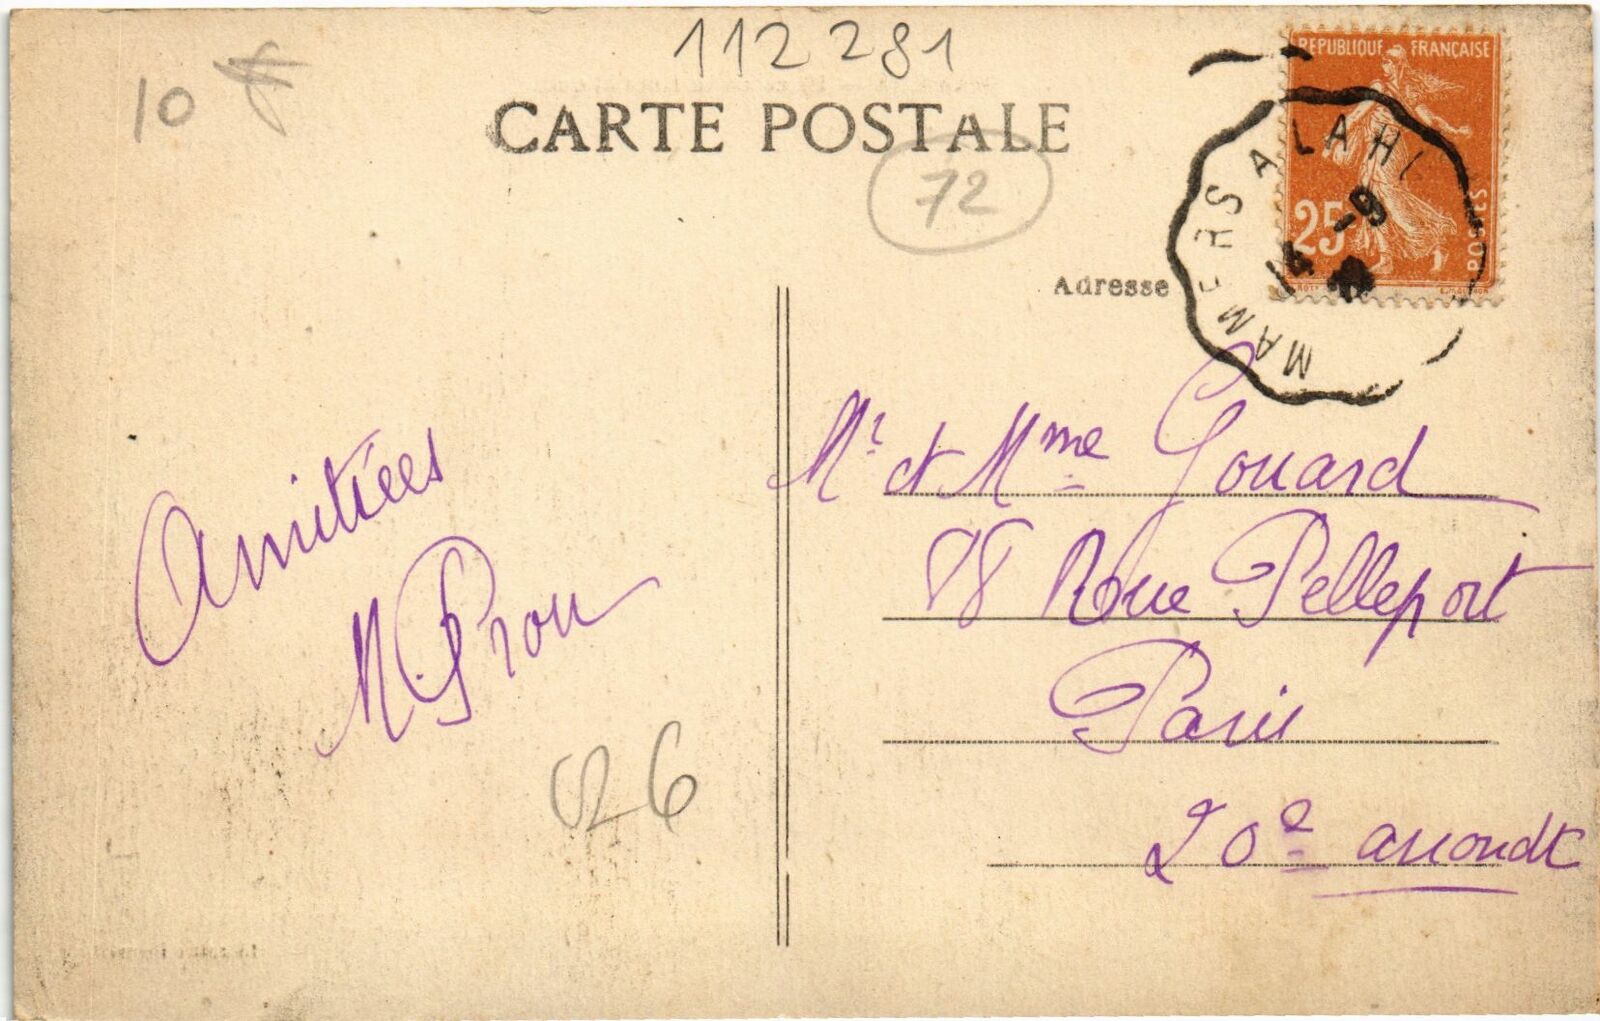 112 281
10
CARTE POSTALE
72
REPUBLIQUE FRANÇAISE
25
POSTES
MAMERS A LA H
14 -9
Adresse
Mr et Mme Gouard
78 Rue Pelleport
Paris
20e arrondt
Amitiées
M Prou
526